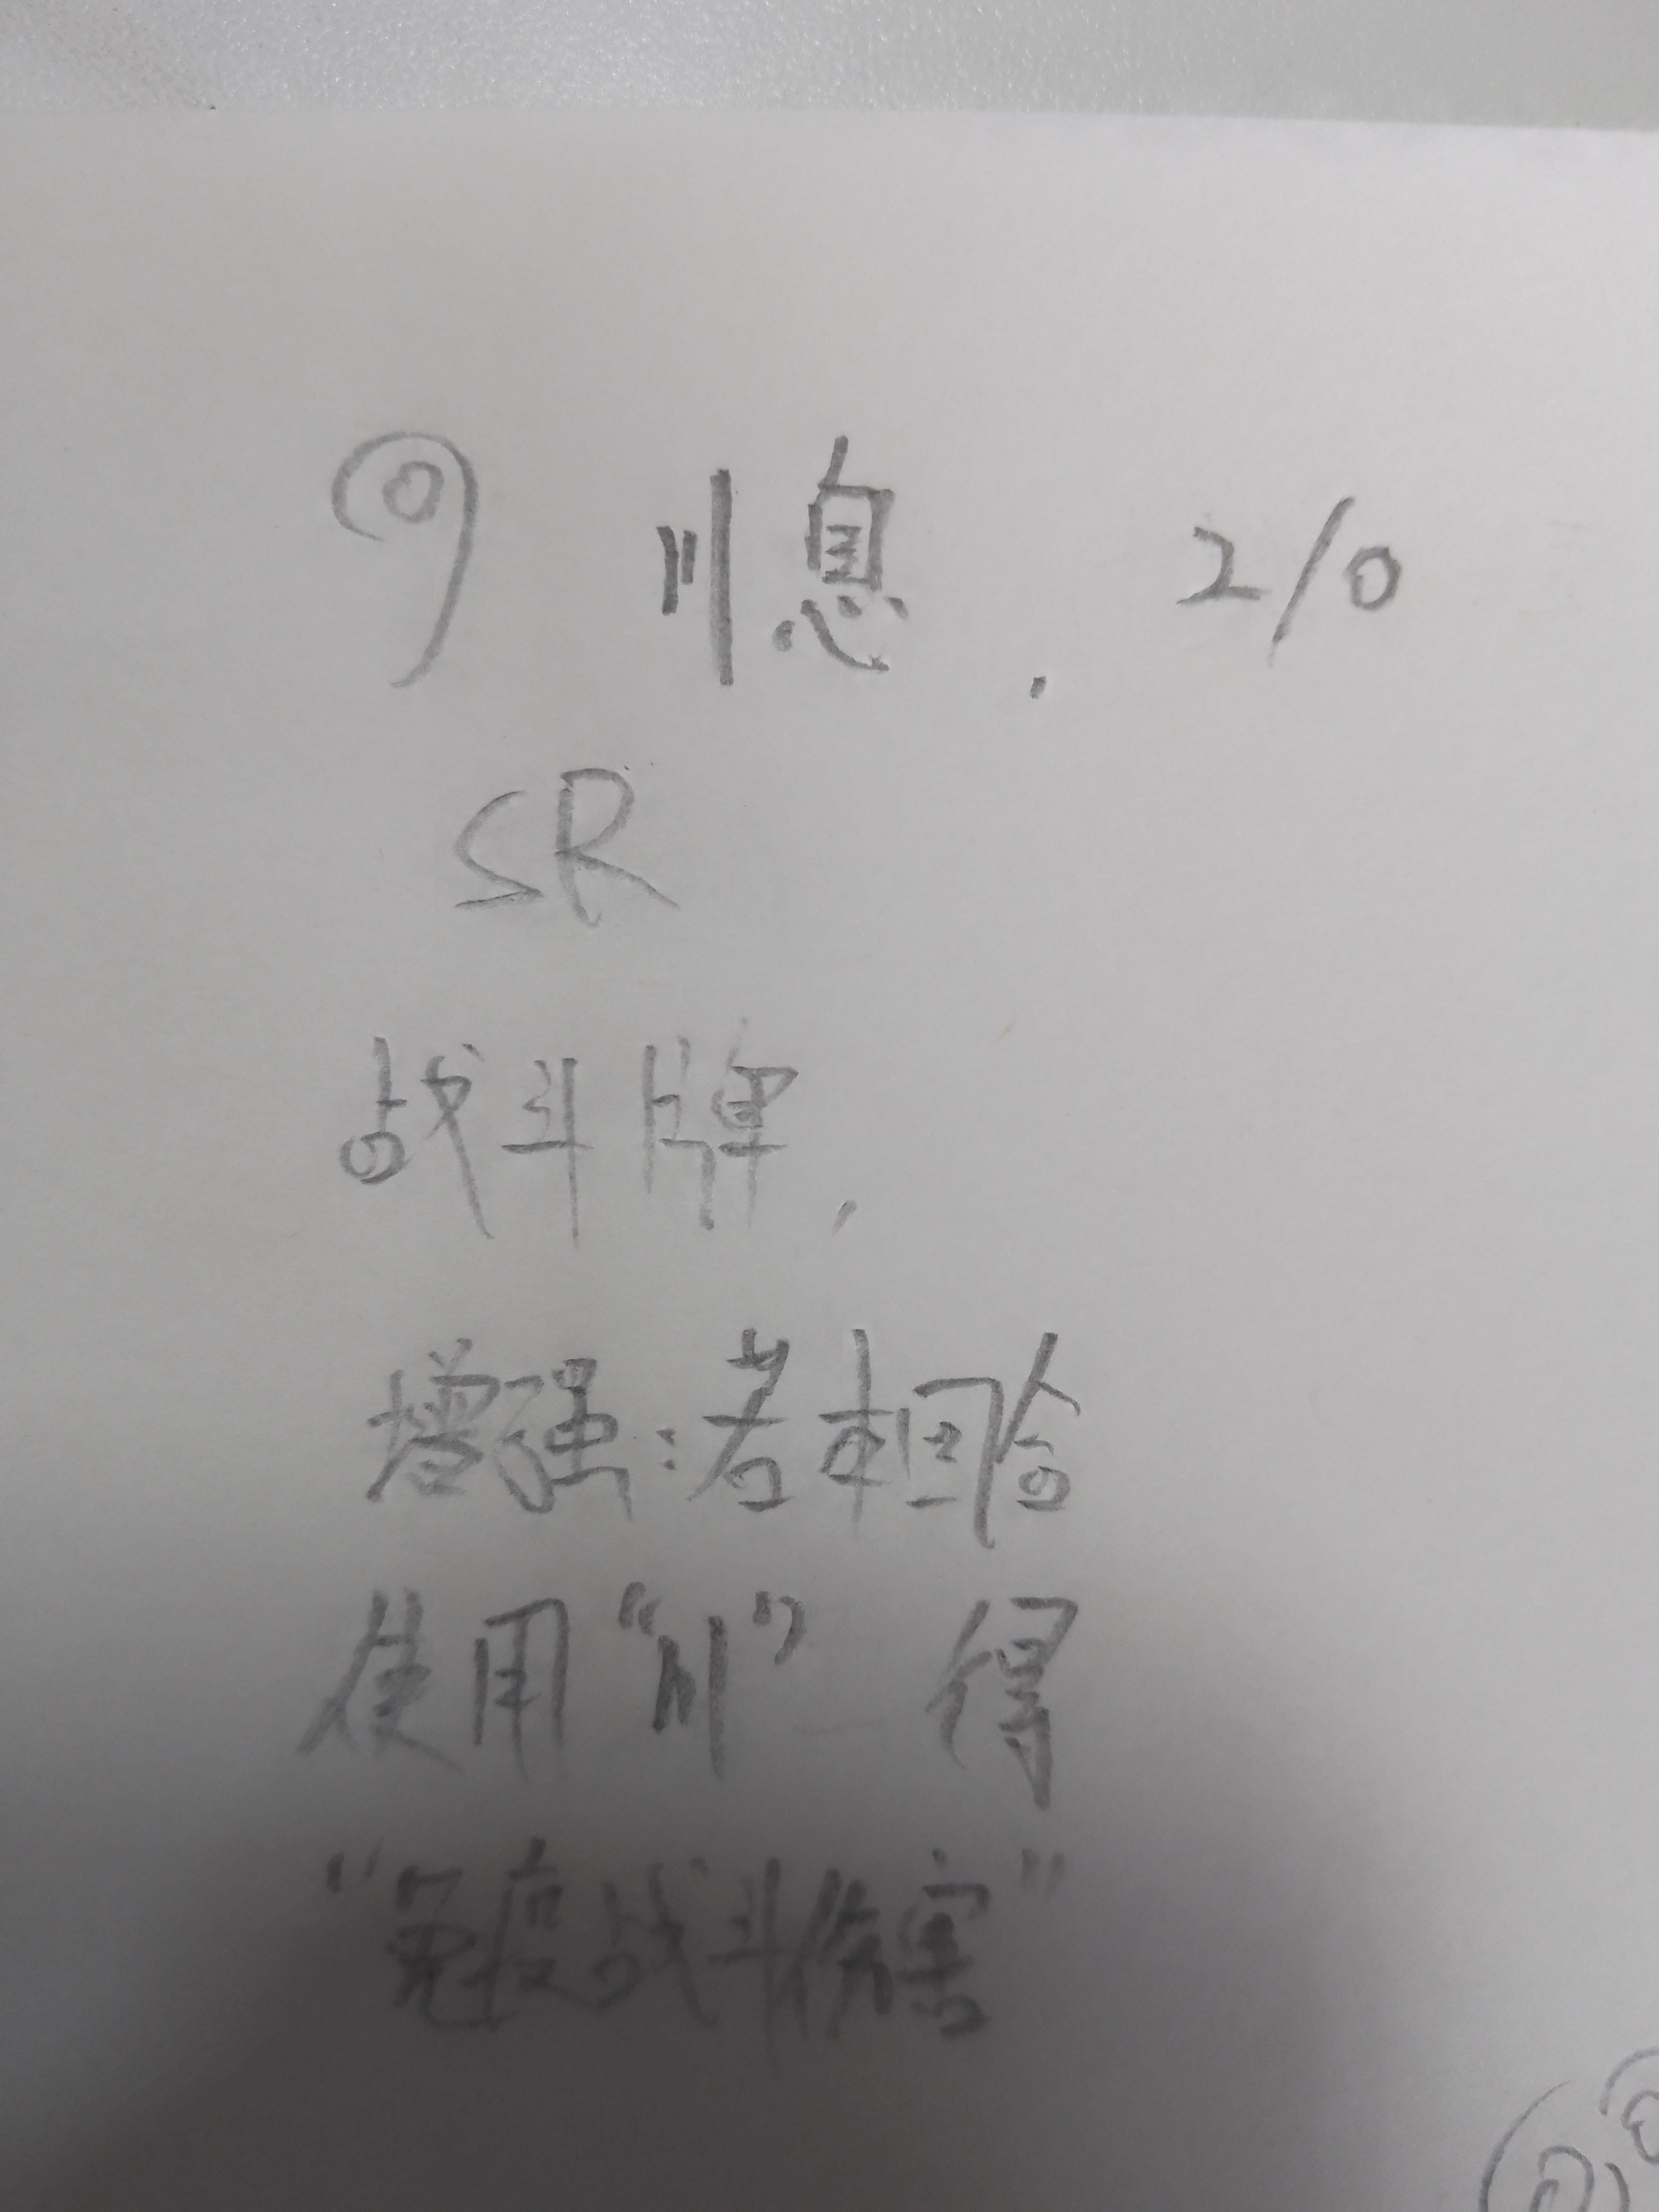 9 川息. 2/0
SR
战斗牌,
增强:若本回合
使用“川” 得
“免疫战斗伤害”